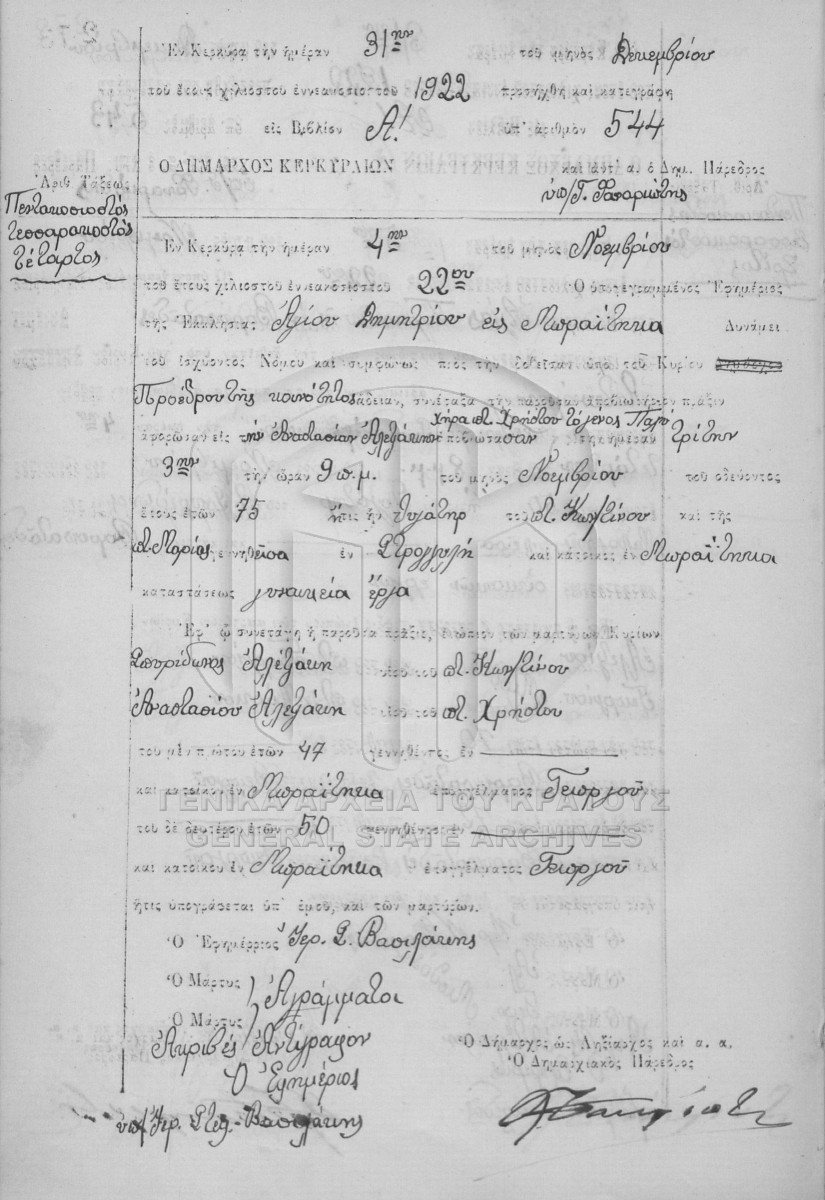 Ἐν Κερκύρᾳ τὴν ἡμέραν 31ην τοῦ μηνὸς Δεκεμβρίου
τοῦ ἔτους χιλιοστοῦ ἐννεακοσιοστοῦ 1922 προσήχθη καὶ κατεγράφη
εἰς Βιβλίον Α! ὑπ' ἀριθμὸν 544
Ο ΔΗΜΑΡΧΟΣ ΚΕΡΚΥΡΑΙΩΝ καὶ ἀντ' α. ὁ Δημ. Πάρεδρος
ὑπ/ Γ.
Ἀριθ. Τάξεως
Πεντακοσιοστὸς
τεσσαρακοστὸς
τέταρτος
Ἐν Κερκύρᾳ τὴν ἡμέραν 4ην τοῦ μηνὸς Νοεμβρίου
τοῦ ἔτους χιλιοστοῦ ἐννεακοσιοστοῦ 22ου Ὁ ὑπογεγραμμένος Ἐφημέριος
τῆς Ἐκκλησίας Ἁγίου Δημητρίου εἰς Μωραΐτηκα Δυνάμει
τοῦ ἰσχύοντος Νόμου καὶ συμφώνως πρὸς τὴν δοθεῖσαν ὑπὸ τοῦ Κυρίου
Προέδρου τῆς κοινότητος ἄδειαν, συνέταξα τὴν παροῦσαν ἀποβιωτήριον πρᾶξιν
χήρα ποτ. Χρήστου τὸ γένος
ἀφορῶσαν εἰς τὴν Ἀναστασίαν Ἀλεξάκη ἀποβιώσασαν τὴν ἡμέραν τρίτην
3ην τὴν ὥραν 9 π.μ. τοῦ μηνὸς Νοεμβρίου τοῦ ὁδεύοντος
ἔτους ἐτῶν 75 ἥτις ἦν θυγάτηρ τοῦ ποτ. Κων/τίνου καὶ τῆς
ποτ. Μαρίας γεννηθεῖσα ἐν Στρογγυλῇ καὶ κάτοικος ἐν Μωραΐτηκα
καταστάσεως γυναικεία ἔργα
Ἐφ' ᾧ συνετάγη ἡ παροῦσα πρᾶξις, ἐνώπιον τῶν μαρτύρων Κυρίων
Σπυρίδωνος Ἀλεξάκη υἱοῦ τοῦ ποτ. Κων/τίνου
Ἀναστασίου Ἀλεξάκη υἱοῦ τοῦ ποτ. Χρήστου
τοῦ μὲν πρώτου ἐτῶν 47 γεννηθέντος ἐν
καὶ κατοίκου ἐν Μωραΐτηκα ἐπαγγέλματος Γεωργοῦ
ΓΕΝΙΚΑ ΑΡΧΕΙΑ ΤΟΥ ΚΡΑΤΟΥΣ
τοῦ δὲ δευτέρου ἐτῶν 50 γεννηθέντος ἐν
GENERAL STATE ARCHIVES
καὶ κατοίκου ἐν Μωραΐτηκα ἐπαγγέλματος Γεωργοῦ
ἥτις ὑπογράφεται ὑπ' ἐμοῦ, καὶ τῶν μαρτύρων.
Ὁ Ἐφημέριος Ἱερ. Σ. Βασιλάκης
Ὁ Μάρτυς
Ἀγράμματοι
Ὁ Μάρτυς
Ἀκριβὲς Ἀντίγραφον
Ὁ Ἐφημέριος
ὑπ/ Ἱερ. Στεφ. Βασιλάκης
Ὁ Δήμαρχος ὡς Ληξίαρχος καὶ α. α.
Ὁ Δημαρχιακὸς Πάρεδρος